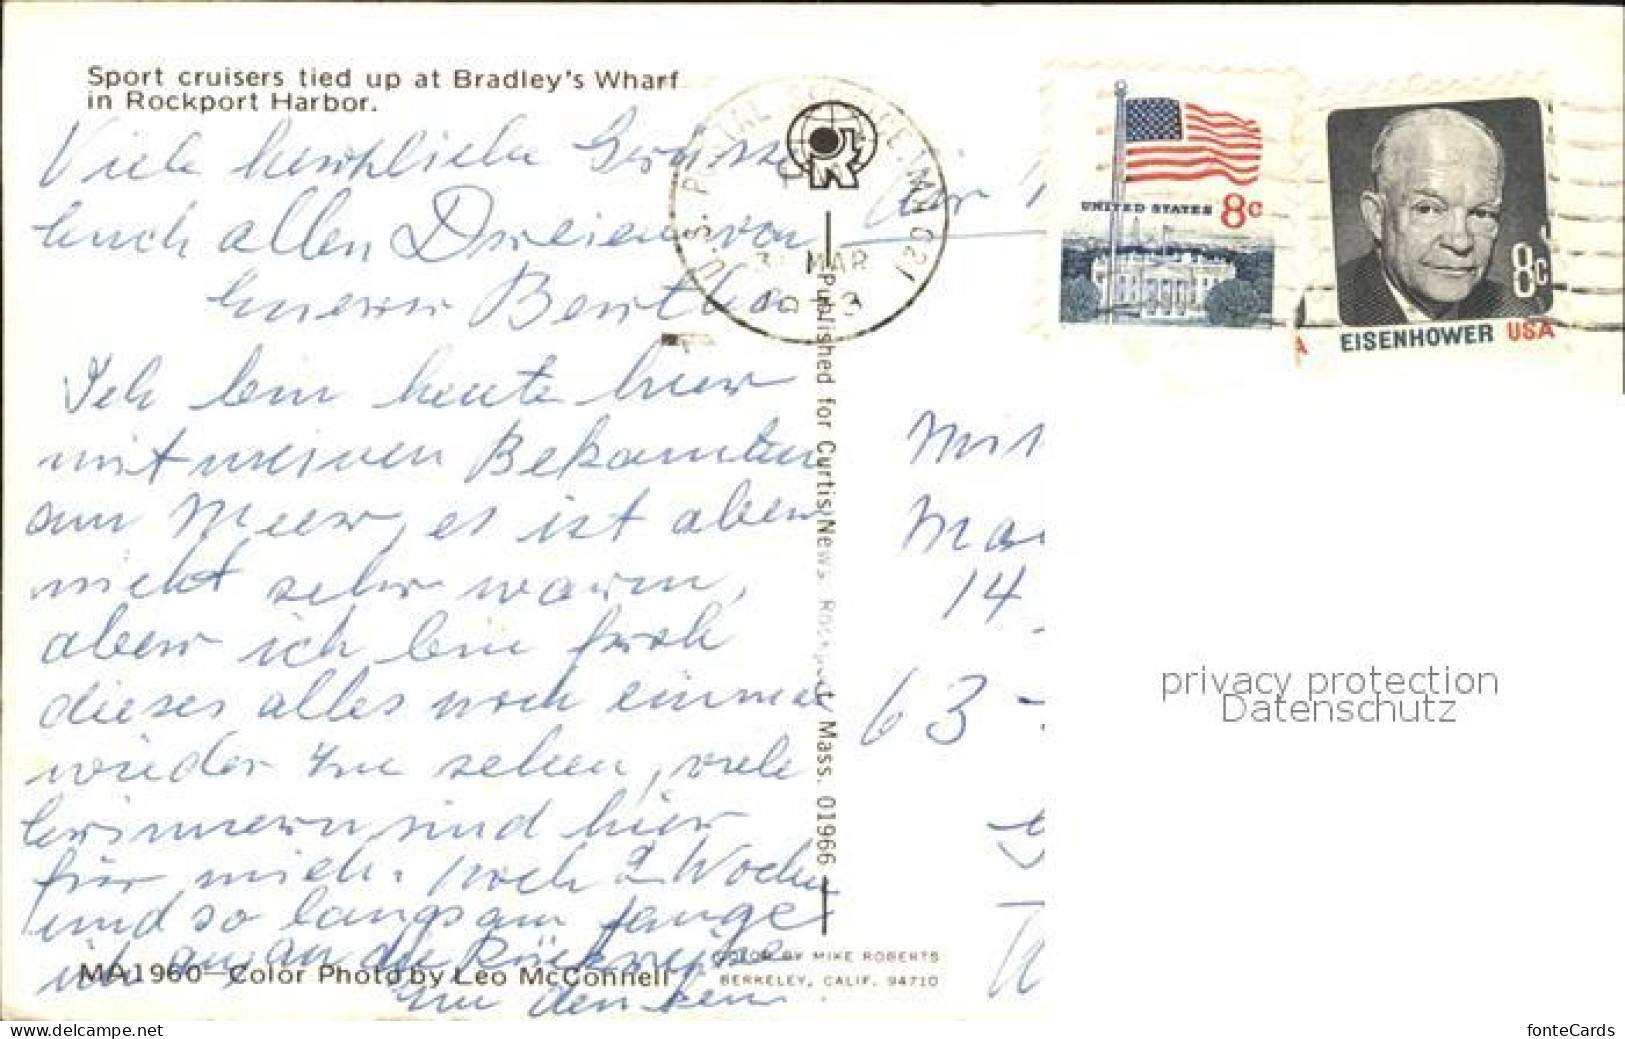 Sport cruisers tied up at Bradley's Wharf
in Rockport Harbor.
Viele herzliche Grüsse
Euch allen Dreien von
Eurer Bertha
Ich bin heute hier
mit meinen Bekannten
am Meer, es ist aber
nicht sehr warm,
aber ich bin froh
dieses alles noch einmal
wieder zu sehen, viele
Erinnerungen sind hier
für mich. Noch 2 Wochen
und so langsam fange
ich an an die Rückreise
zu denken
MA1960—Color Photo by Leo McConnell
Published for Curtis News, Rockport, Mass. 01966
COLOR BY MIKE ROBERTS
BERKELEY, CALIF. 94710
U.S. POSTAL SERVICE, MA 021
31 MAR
1973
UNITED STATES 8c
8c
EISENHOWER USA
A
Air
14
63 -
privacy protection
Datenschutz
www.delcampe.net
fonteCards